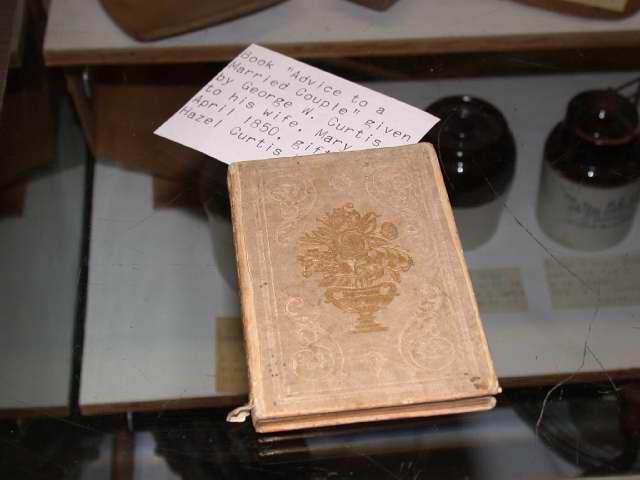 Book "Advice to a
Married Couple" given
by George W. Curtis
to his wife, Mary
April 1850. gift
Hazel Curtis